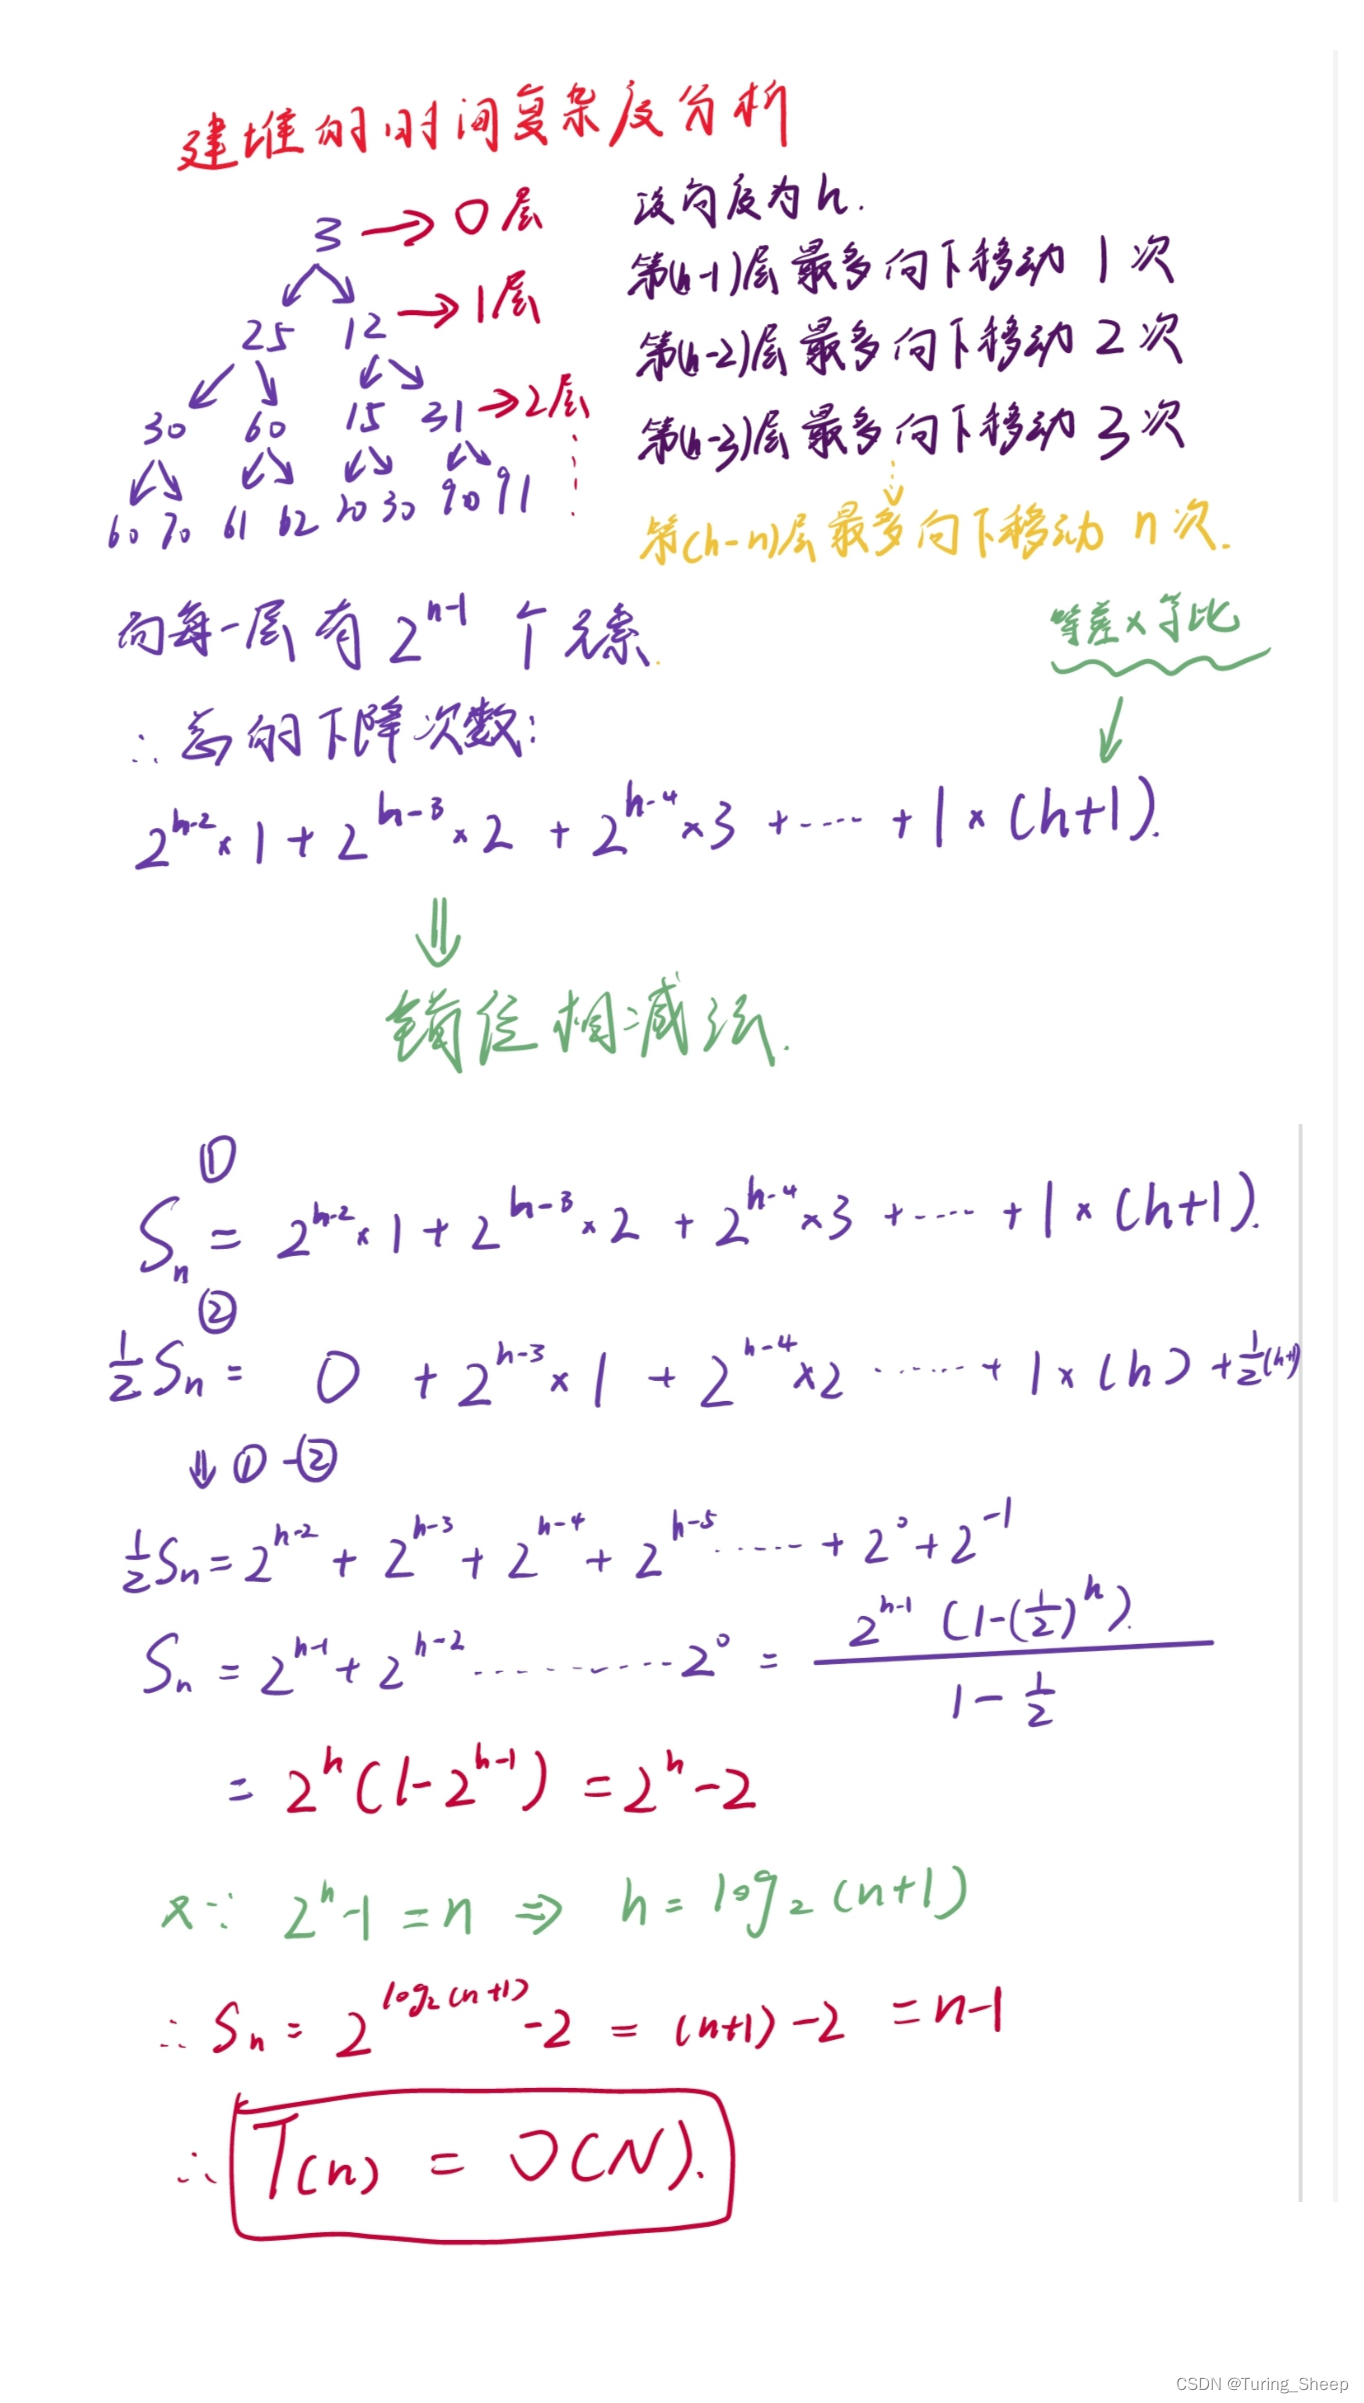 建堆的时间复杂度分析
3 → 0层
25 12 → 1层
30 60 15 31 → 2层
60 70 61 62 20 30 90 91
设高度为h.
第(h-1)层最多向下移动1次
第(h-2)层最多向下移动2次
第(h-3)层最多向下移动3次
第(h-n)层最多向下移动n次.
而每一层有2^{n-1}个元素.
等差×等比
∴总的下降次数:
2^{h-2}×1+2^{h-3}×2+2^{h-4}×3+······+1×(h+1).
⇓
错位相减法.
①
S_n=2^{h-2}×1+2^{h-3}×2+2^{h-4}×3+······+1×(h+1).
②
½S_n=0+2^{h-3}×1+2^{h-4}×2······+1×(h)+½(h+1)
⇓①-②
½S_n=2^{h-2}+2^{h-3}+2^{h-4}+2^{h-5}······+2^0+2^{-1}
S_n=2^{h-1}+2^{h-2}·········2^0=\frac{2^{h-1}(1-(½)^h).}{1-½}
=2^h(1-2^{h-1})=2^h-2
又∵2^h-1=n⇒h=log₂(n+1)
∴S_n=2^{log₂(n+1)}-2=(n+1)-2=n-1
∴T(n)=O(N).
CSDN @Turing_Sheep